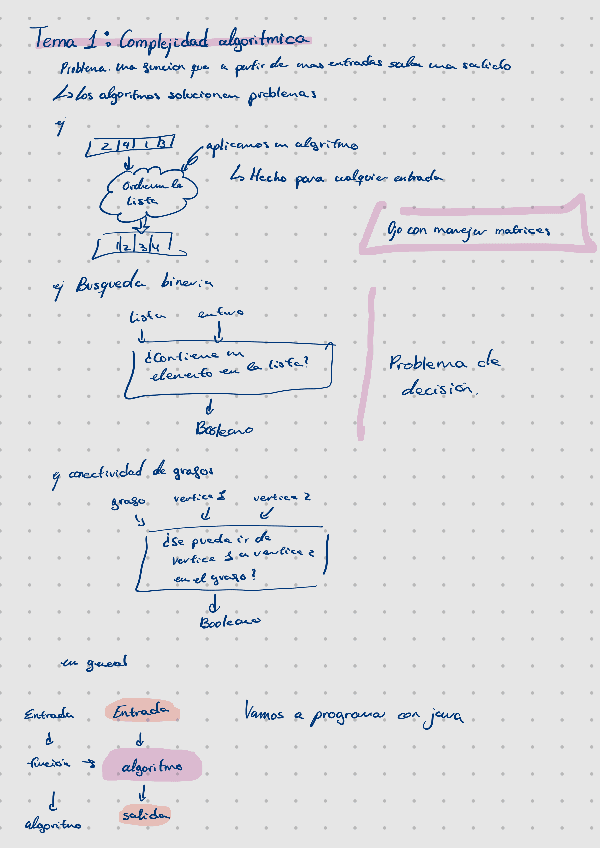 Tema 1: Complejidad algoritmica
Problema. una funcion que a partir de unas entradas salen una salida
↳ Los algoritmos solucionan problemas
ej
2|4|1|3
aplicamos un algritmo
Ordenan la
lista
↳ Hecho para cualquier entrada
1|2|3|4
Ojo con manejar matrices
ej Busqueda binaria
lista entero
¿Contiene un
elemento en la lista?
Problema de
decisión.
Booleano
ej conectividad de grafos
grafo vertice 1 vertice 2
¿Se puede ir de
vertice 1 a vertice 2
en el grafo?
Booleano
en general
Entrada Entrada
Vamos a programa con java
función → algoritmo
algoritmo salida